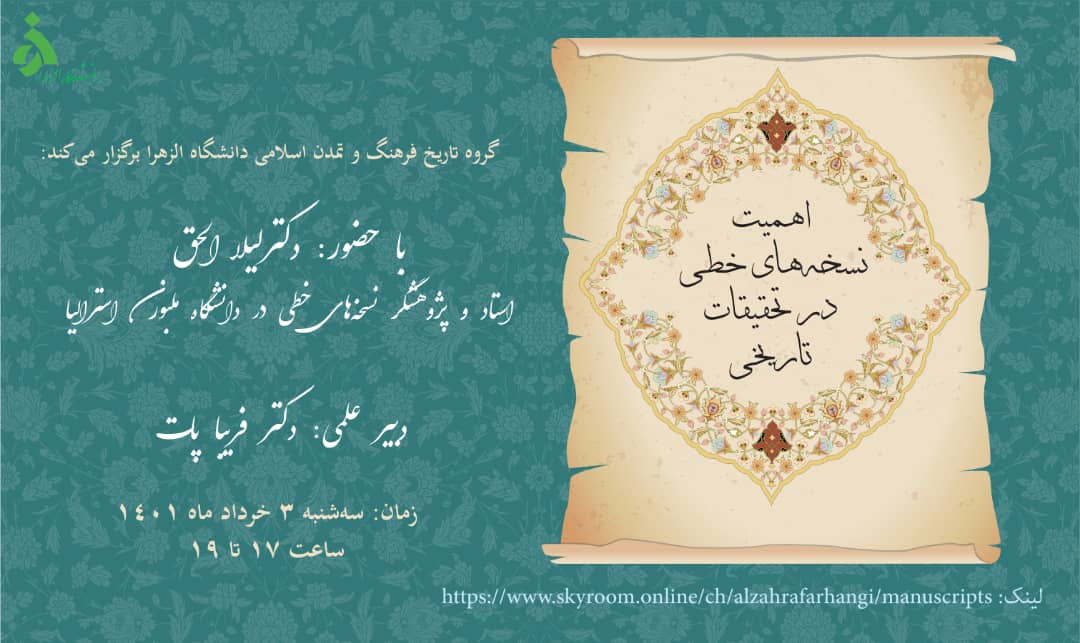 گروه تاریخ فرهنگ و تمدن اسلامی دانشگاه الزهرا برگزار می‌کند:
اهمیت
نسخه‌های خطی
در تحقیقات
تاریخی
با حضور: دکتر لیلا الحق
استاد و پژوهشگر نسخه‌های خطی در دانشگاه ملبورن استرالیا
دبیر علمی: دکتر فریبا پات
زمان: سه‌شنبه ۳ خرداد ماه ۱۴۰۱
ساعت ۱۷ تا ۱۹
لینک: https://www.skyroom.online/ch/alzahrafarhangi/manuscripts